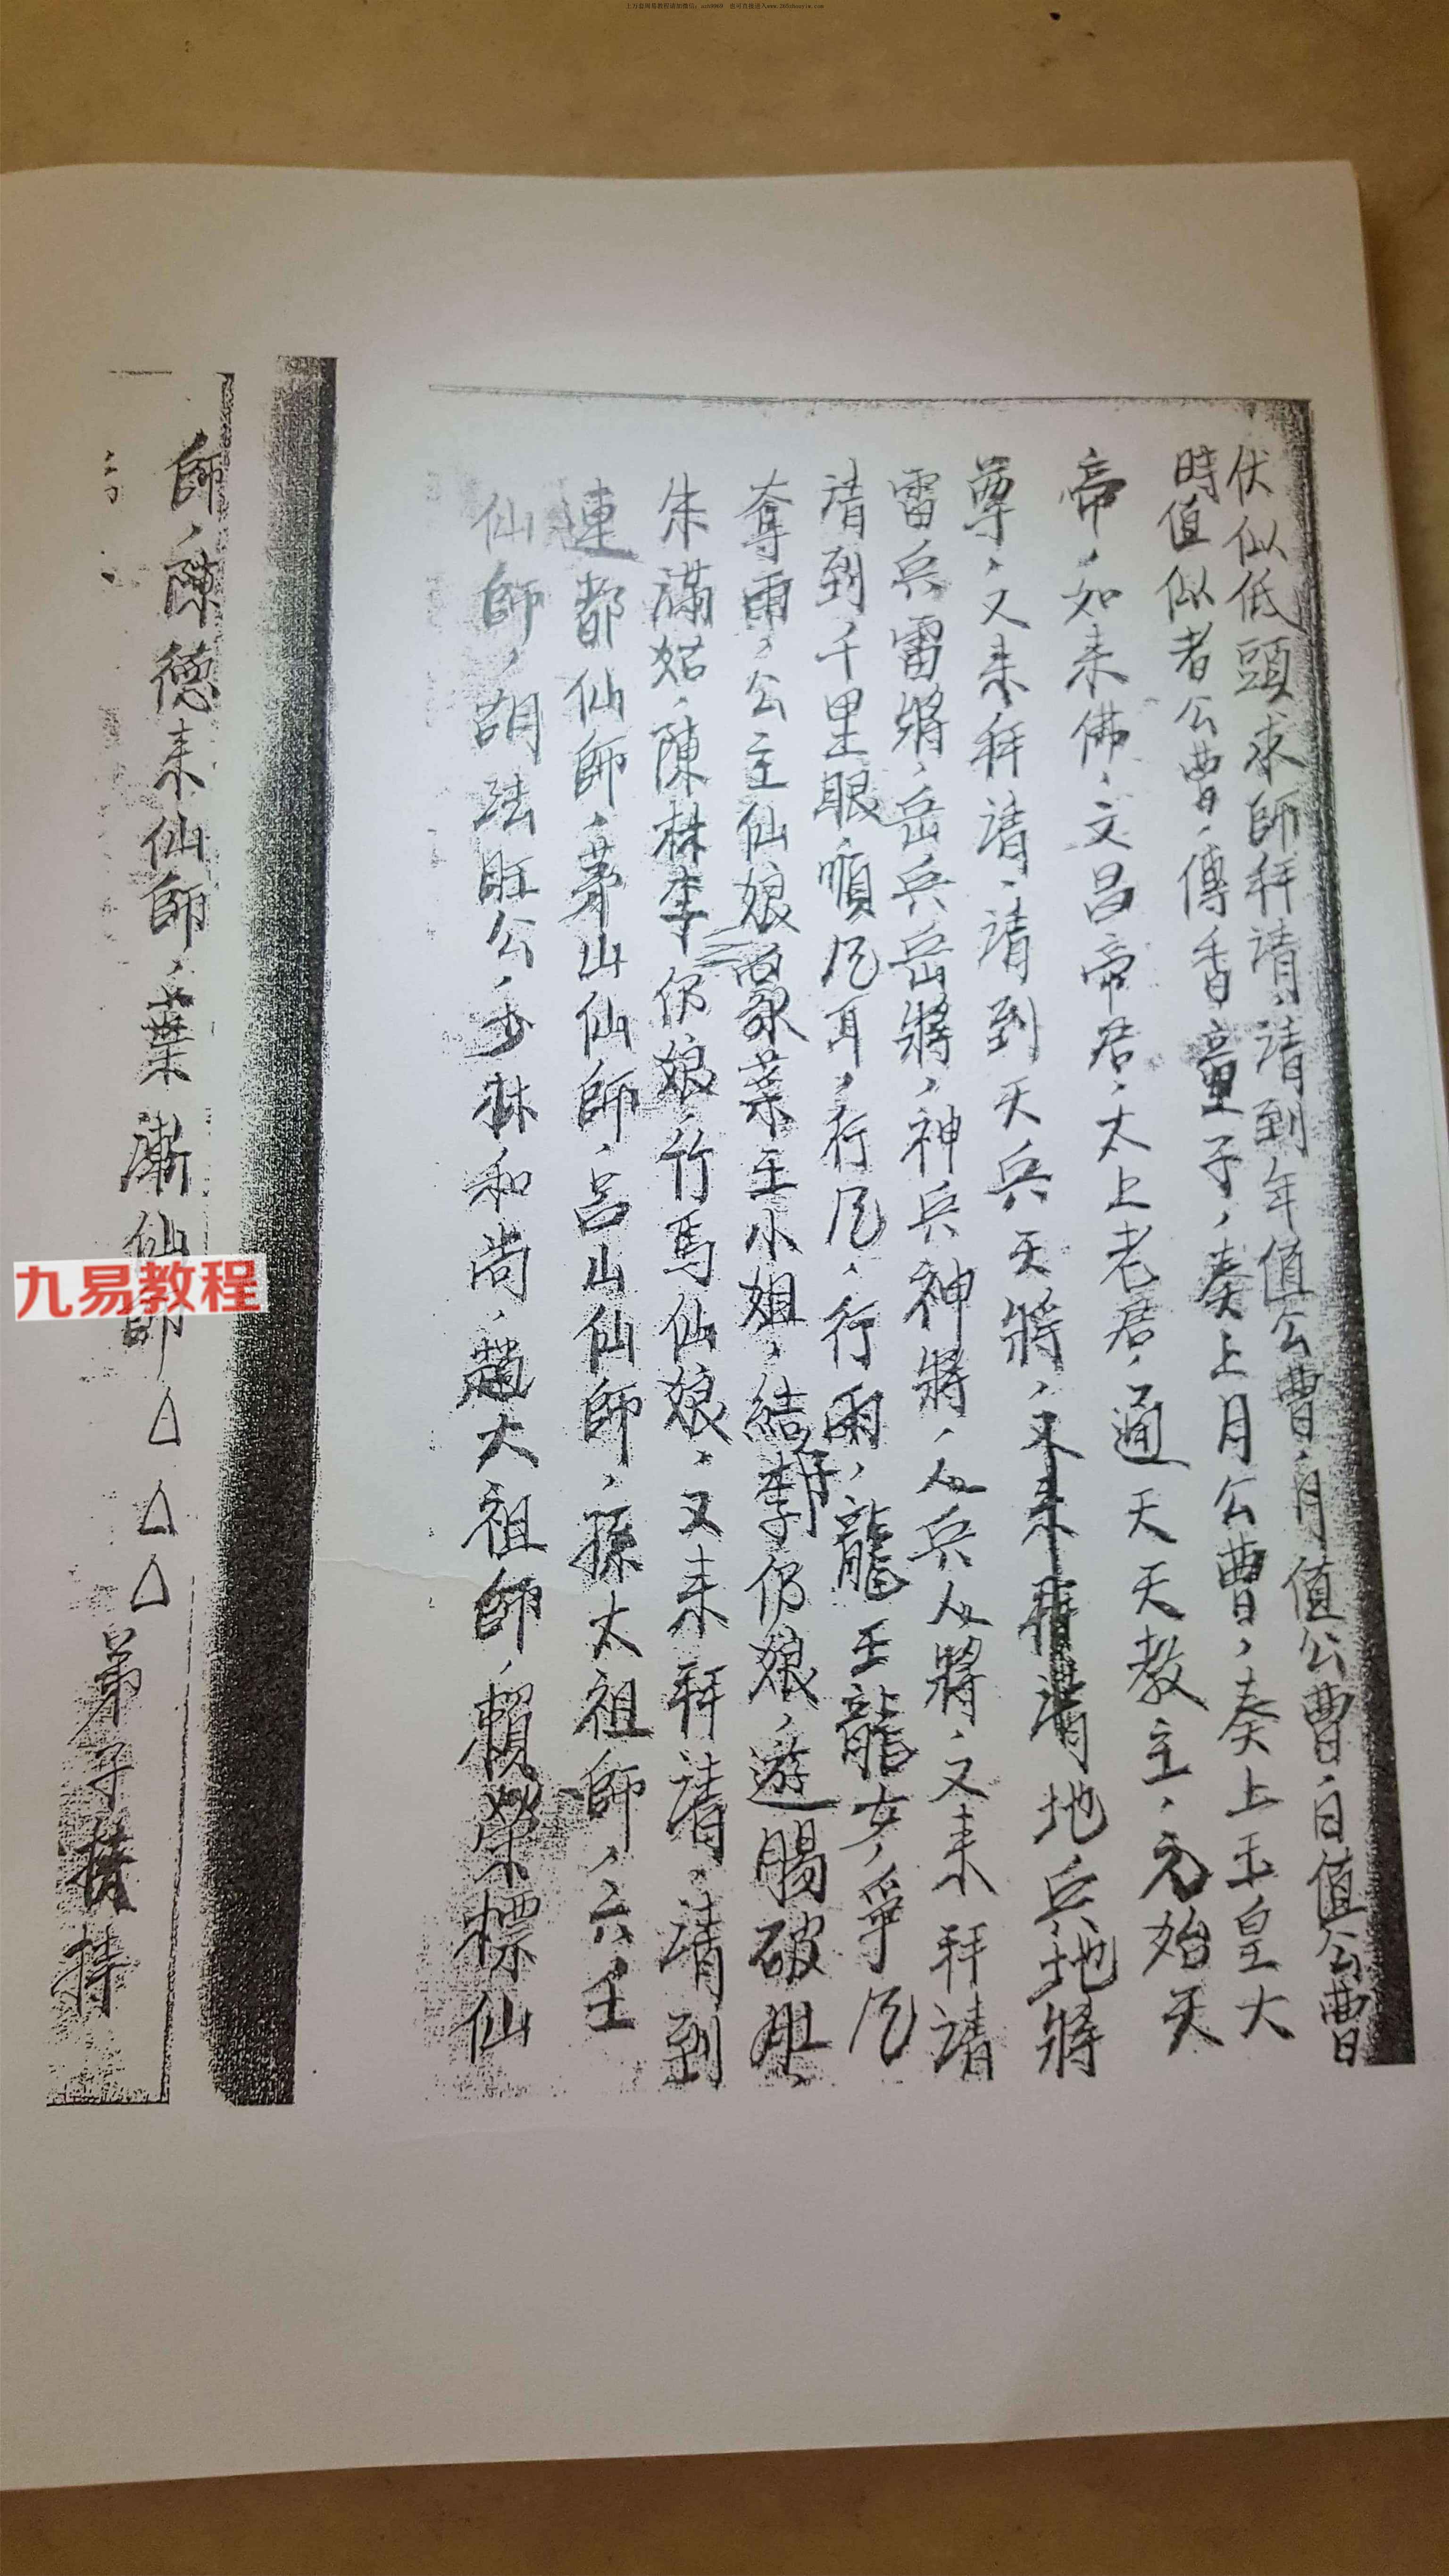 伏似低頭求師拜請、請到年值公曹、月值公曹、日值公曹
時值似者公曹、傳香童子、奏上月公曹、奏上玉皇大
帝、如来佛、文昌帝君、太上老君、通天天教主、元始天
尊、又来拜請、請到天兵天將、又来拜請地兵地將
雷兵雷將、岳兵岳將、神兵神將、人兵人將、又来拜請
請到、千里眼、順凡耳、行凡、行雨、龍王龍女、爭凡
奪雨、公主仙娘 葉王小姐、結 李仍娘、遊腸破肚、
朱滿姑、陳林李仍娘、竹馬仙娘、又来拜請、請到
連都仙師、茅山仙師、呂山仙師、孫太祖師、六壬
仙師、胡法旺公、少林和尚、趙大祖師、賴榮標仙
師、陳德来仙師、葉漸仙師△△△弟子 持
九易教程